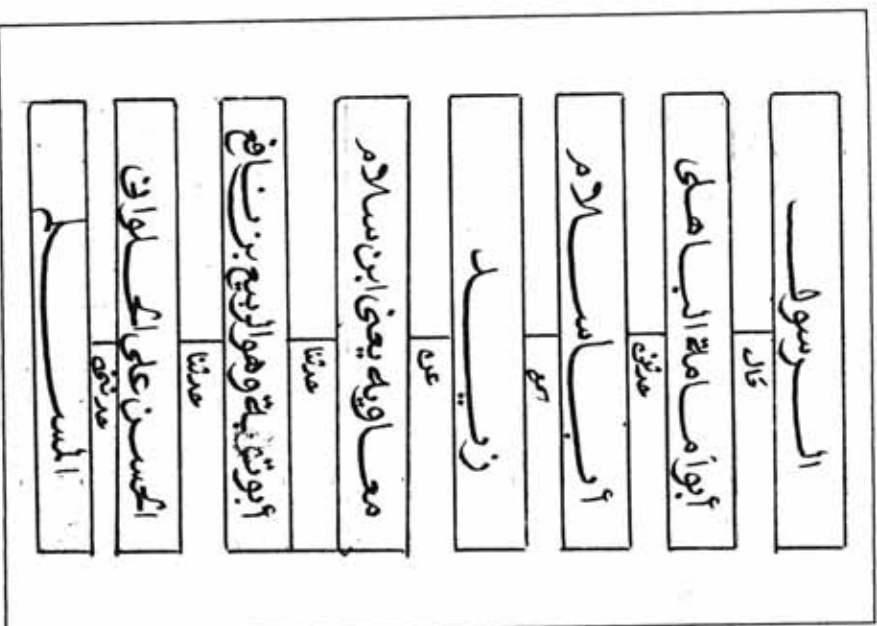 الرسول
قال
أبو أمامة الباهلى
حدثنى
أبا سلام
سمع
زيد
عن
معاويه يعنى ابن سلام
حدثنا
أبو توبة وهو الربيع بن نافع
حدثنا
الحسن على الحلوانى
حدثنى
المسلم